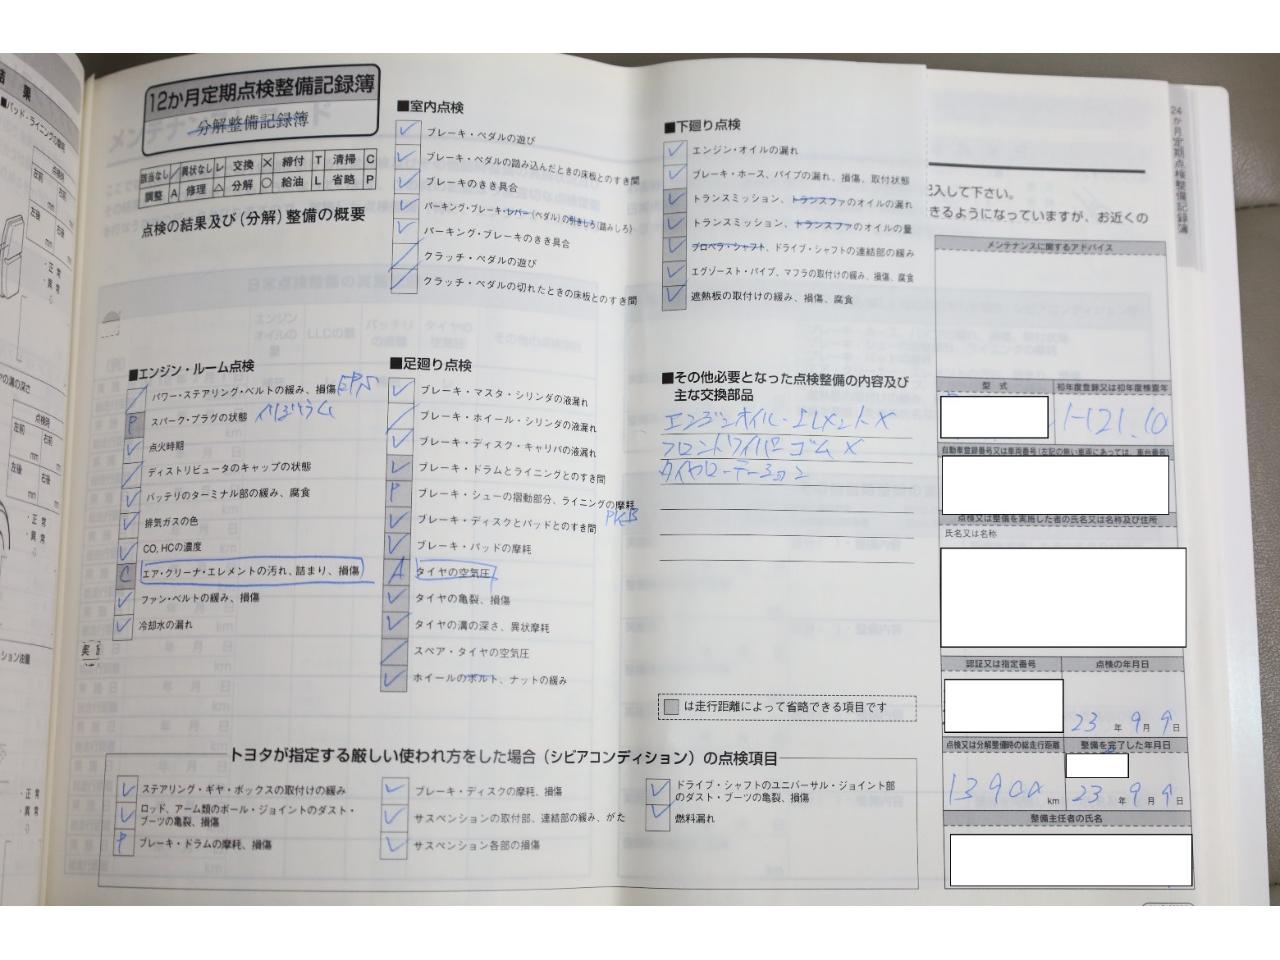 結果
■パッド・ライニングの摩耗
12か月定期点検整備記録簿
分解整備記録簿
該当なし / 異状なし レ 交換 × 締付 T 清掃 C
調整 A 修理 △ 分解 ○ 給油 L 省略 P
点検の結果及び(分解)整備の概要
■室内点検
ブレーキ・ペダルの遊び
ブレーキ・ペダルの踏み込んだときの床板とのすき間
ブレーキのきき具合
パーキング・ブレーキ・レバー(ペダル)の引きしろ(踏みしろ)
パーキング・ブレーキのきき具合
クラッチ・ペダルの遊び
クラッチ・ペダルの切れたときの床板とのすき間
■下廻り点検
エンジン・オイルの漏れ
ブレーキ・ホース、パイプの漏れ、損傷、取付状態
トランスミッション、トランスファのオイルの漏れ
トランスミッション、トランスファのオイルの量
プロペラ・シャフト、ドライブ・シャフトの連結部の緩み
エグゾースト・パイプ、マフラの取付けの緩み、損傷、腐食
遮熱板の取付けの緩み、損傷、腐食
■エンジン・ルーム点検
パワー・ステアリング・ベルトの緩み、損傷 EPS
P スパーク・プラグの状態
点火時期
ディストリビュータのキャップの状態
バッテリのターミナル部の緩み、腐食
排気ガスの色
CO, HCの濃度
C エア・クリーナ・エレメントの汚れ、詰まり、損傷
ファン・ベルトの緩み、損傷
冷却水の漏れ
■足廻り点検
ブレーキ・マスタ・シリンダの液漏れ
ブレーキ・ホイール・シリンダの液漏れ
ブレーキ・ディスク・キャリパの液漏れ
ブレーキ・ドラムとライニングとのすき間
P ブレーキ・シューの摺動部分、ライニングの摩耗
ブレーキ・ディスクとパッドとのすき間 PKB
ブレーキ・パッドの摩耗
A タイヤの空気圧
タイヤの亀裂、損傷
タイヤの溝の深さ、異状摩耗
スペア・タイヤの空気圧
ホイールのボルト、ナットの緩み
■その他必要となった点検整備の内容及び
主な交換部品
エンジンオイル・エレメント ×
フロントワイパーゴム ×
タイヤローテーション
は走行距離によって省略できる項目です
トヨタが指定する厳しい使われ方をした場合(シビアコンディション)の点検項目
ステアリング・ギヤ・ボックスの取付けの緩み
ロッド、アーム類のボール・ジョイントのダスト・
ブーツの亀裂、損傷
P ブレーキ・ドラムの摩耗、損傷
ブレーキ・ディスクの摩耗、損傷
サスペンションの取付部、連結部の緩み、がた
サスペンション各部の損傷
ドライブ・シャフトのユニバーサル・ジョイント部
のダスト・ブーツの亀裂、損傷
燃料漏れ
24か月定期点検整備記録簿
記入して下さい。
きるようになっていますが、お近くの
メンテナンスに関するアドバイス
型 式
初年度登録又は初年度検査年
H21.10
自動車登録番号又は車両番号(左記の無い車両にあっては、車台番号)
点検又は整備を実施した者の氏名又は名称及び住所
氏名又は名称
認証又は指定番号
点検の年月日
23 年 9 月 9 日
点検又は分解整備時の総走行距離
整備を完了した年月日
13900 km
23 年 9 月 9 日
整備主任者の氏名